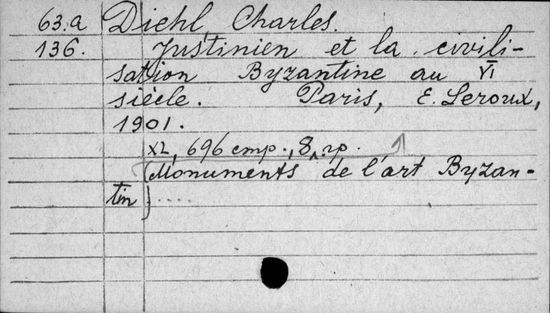 63.a Diehl, Charles.
136. Justinien et la civili-
sation Byzantine au VI
siècle. Paris, E. Leroux,
1901.
XL, 696 стр., 8, гр.
(Monuments de l'art Byzan-
tin) .....